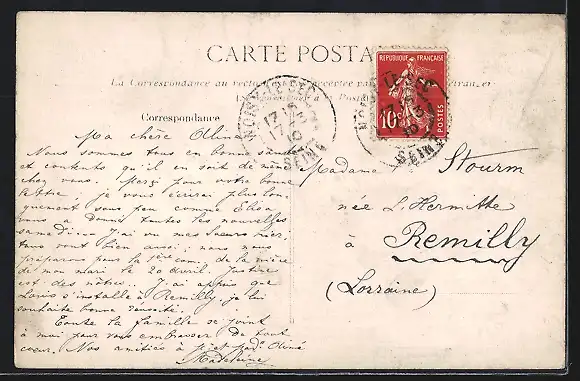 CARTE POSTALE
La Correspondance au recto
Correspondance
RÉPUBLIQUE FRANÇAISE
10c
POSTES
NOISY-LE-SEC
17
10
SEINE
Ma chère Aline
Nous sommes tous en bonne santé
et contents qu'il en soit de même
chez vous. Merci pour votre bonne
lettre je vous écrirai plus lon-
guement sous peu comme
vous a donné toutes les nouvelles
samedi. J'ai vu mes sœurs hier,
tous vont bien aussi; nous nous
préparons pour la 1ère com. de la nièce
de mon mari le 20 avril. Justine
est des nôtres. J'ai appris que
Louis s'installe à Remilly, je lui
souhaite bonne réussite.
Toute la famille se joint
à moi pour vous embrasser de tout
cœur. Nos amitiés à
Madeleine
Madame Stourm
née L'Hermitte
à Remilly
(Lorraine)